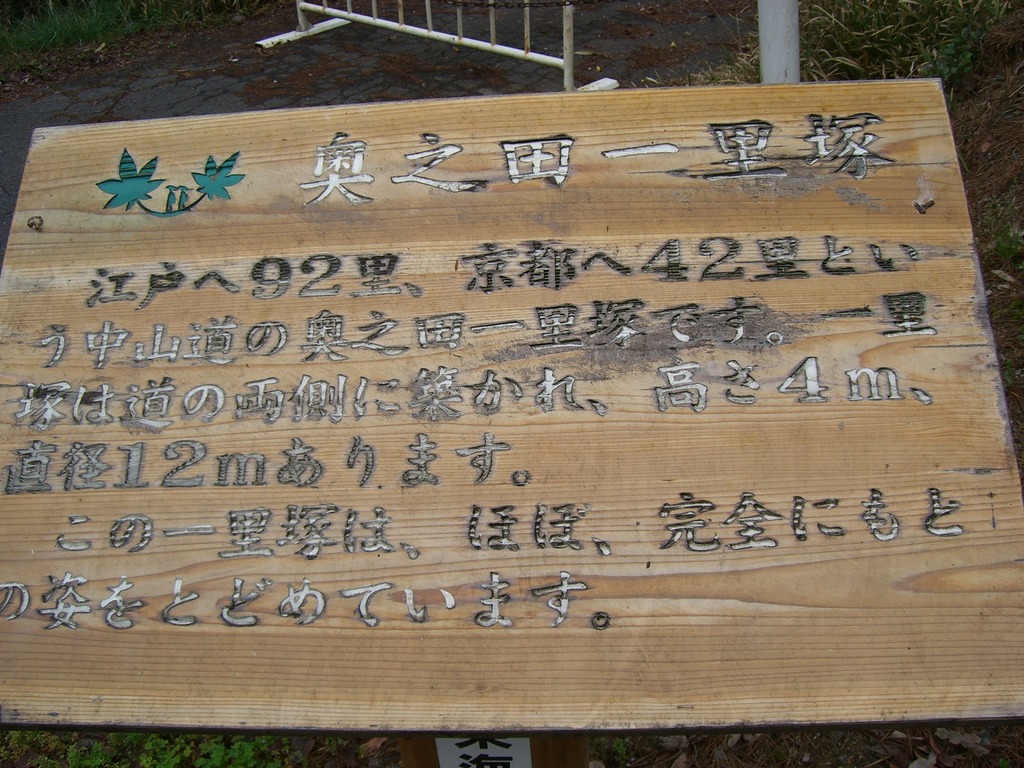 奥之田一里塚
江戸へ92里、京都へ42里とい
う中山道の奥之田一里塚です。一里
塚は道の両側に築かれ、高さ4m、
直径12mあります。
この一里塚は、ほぼ、完全にもと
の姿をとどめています。